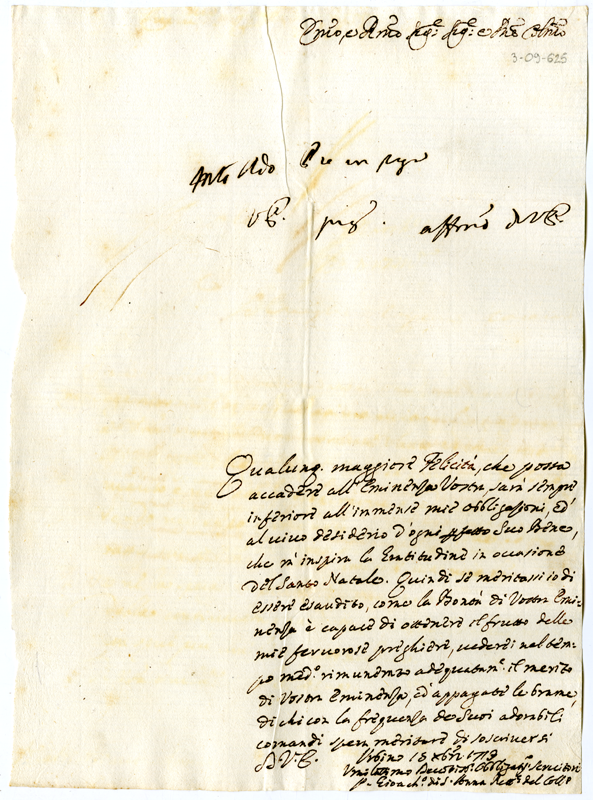 Em̃o, e Rm̃o Sigr̃e Sigr̃e e Pñe Colm̃o
3-09-625
V. E. affm̃o di V. E.
Qualunq. maggiore Felicità, che possa
accadere all'Eminenza Vostra, sarà sempre
inferiore all'immense mie obbligazioni, ed
al vivo desiderio d'ogni Suo Bene,
che m'inspira la Gratitudine in occasione
del Santo Natale. Quindi se meritassi io di
essere esaudito, come la Bontà di Vostra Emi-
nenza è capace di ottenere il frutto delle
mie fervorose preghiere, vederei nel tem-
po med.o rimunerato adequatam.e il merito
di Vostra Eminenza, ed appagate le brame
di chi con la frequenza de Suoi adorabili
comandi spera meritare di soscriversi
D. V. E. Urbino 15 Xbre 1719
Umilissimo Devotis.o Obbligat.o Servitore
di S. Anna Rett.e del Coll.o